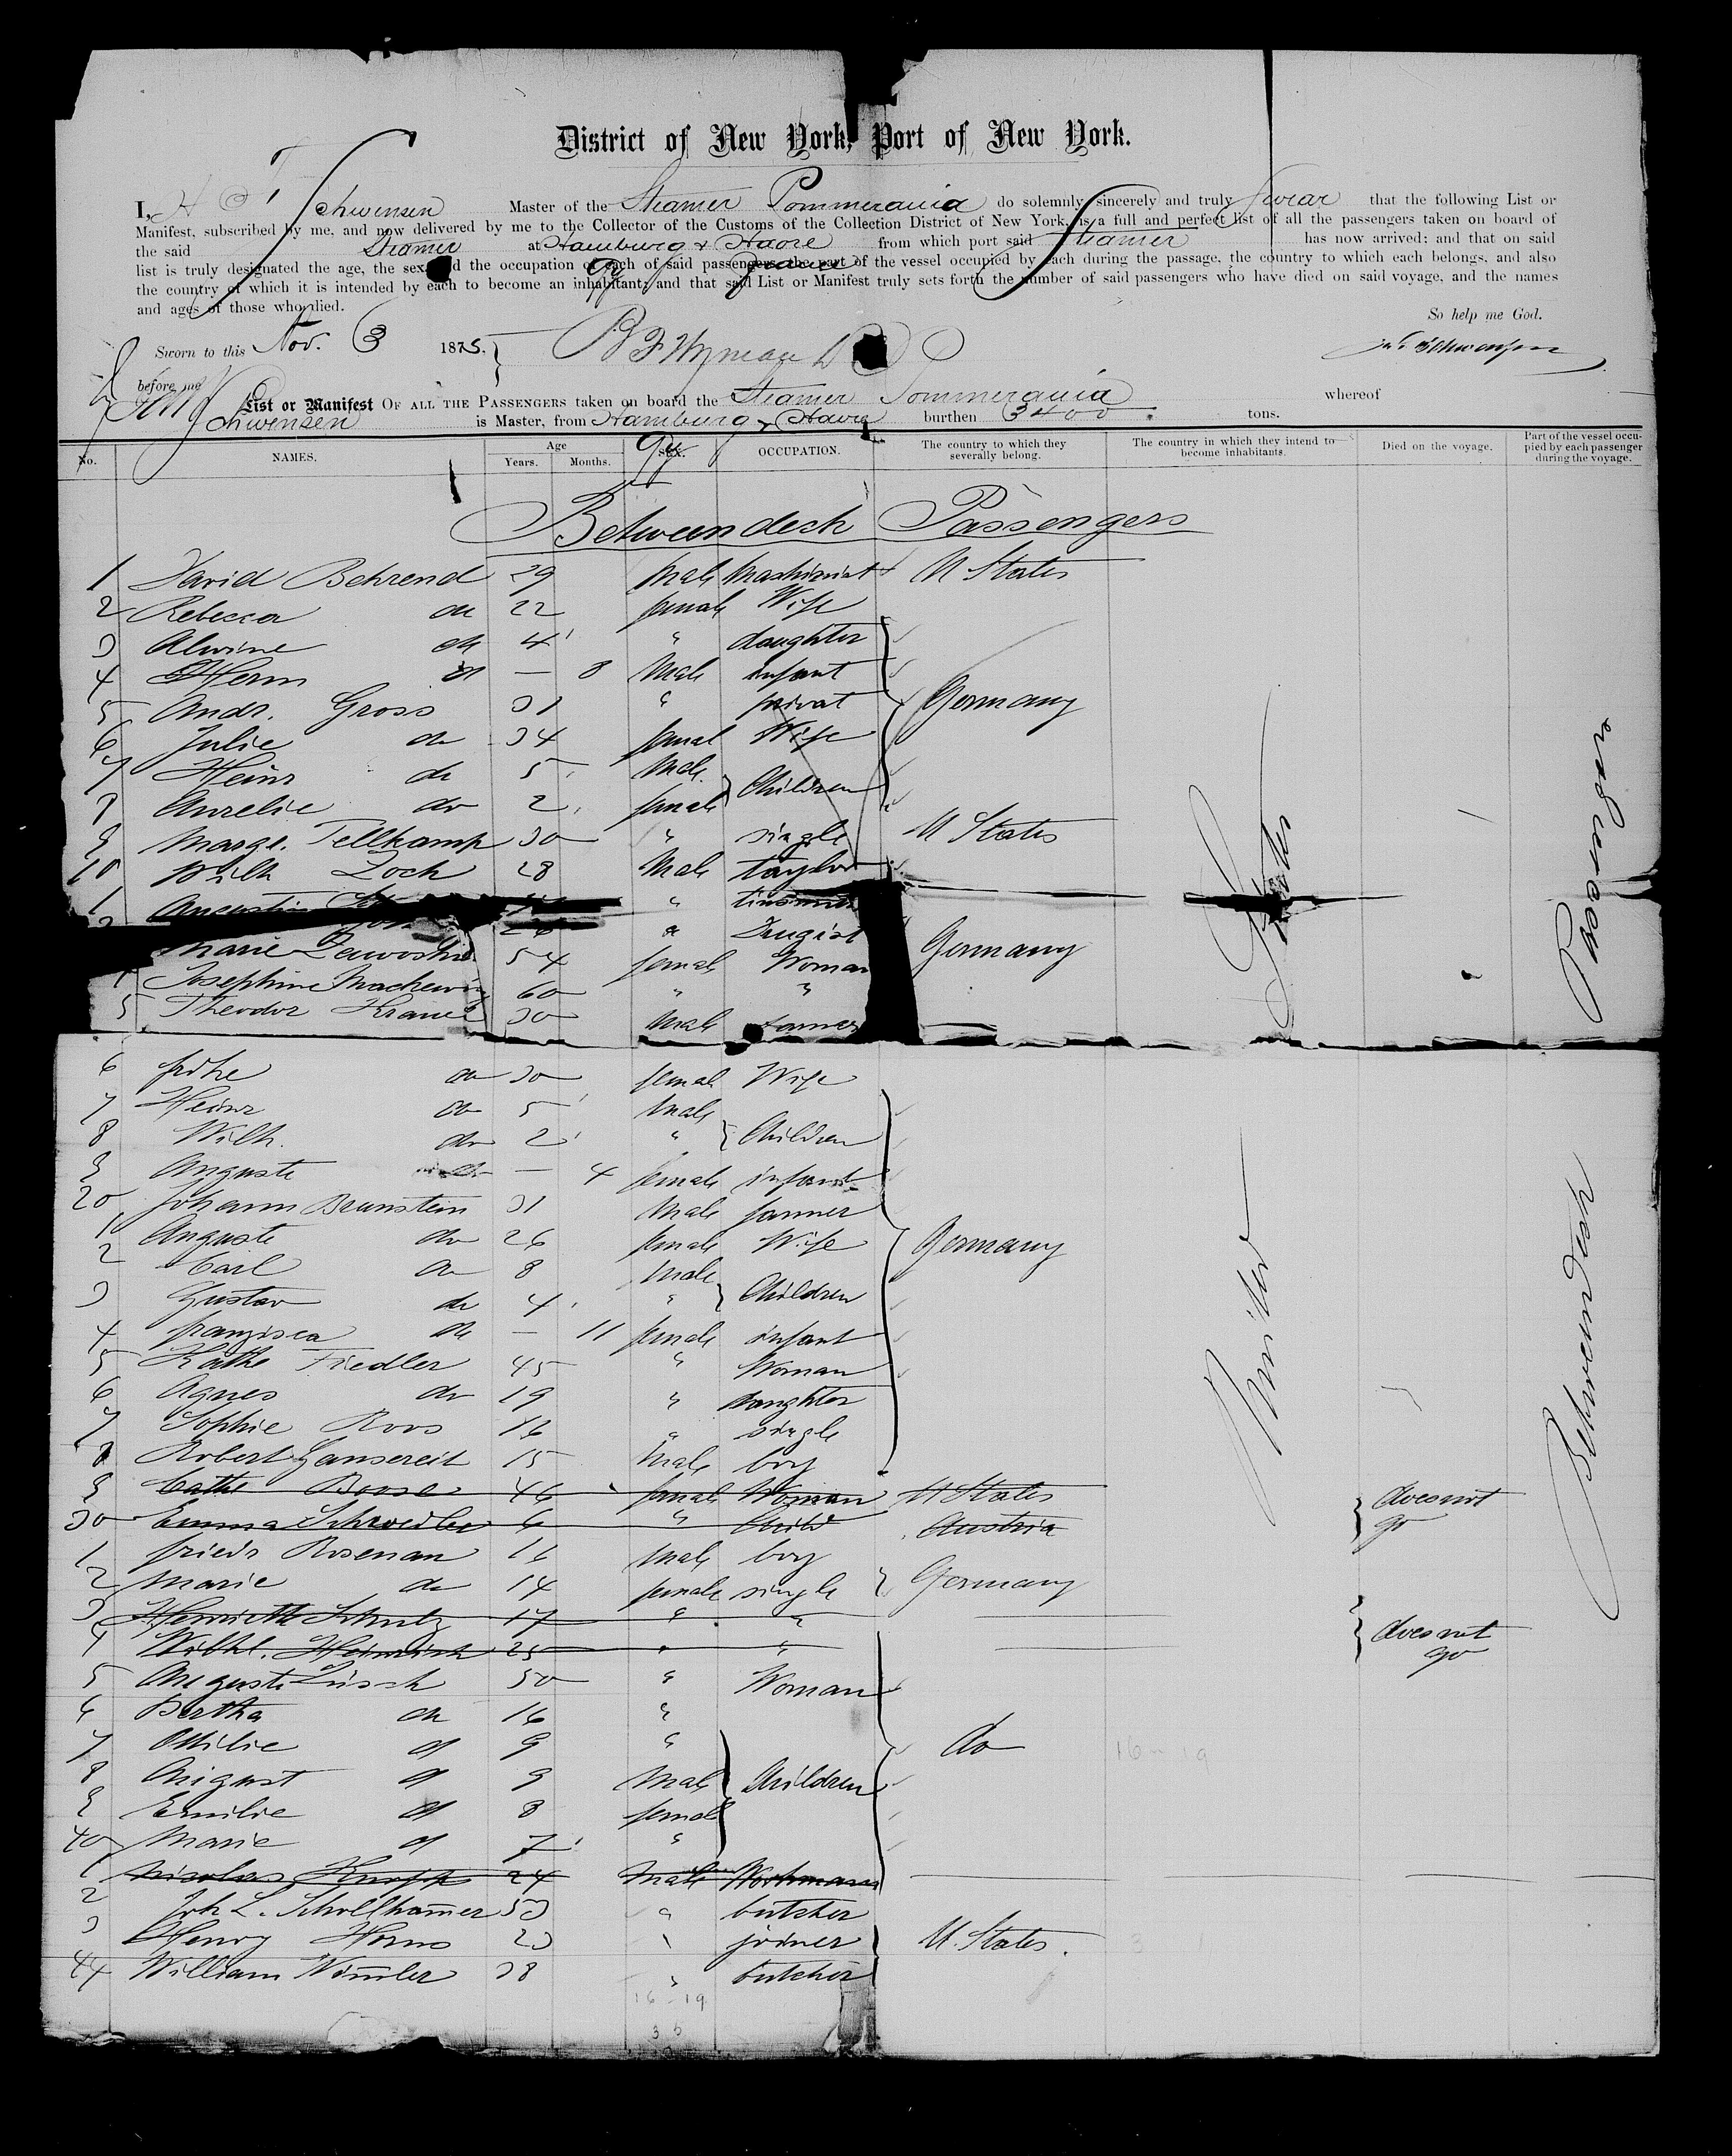 District of New York, Port of New York.
I, H F Schwensen Master of the Steamer Pommerania do solemnly, sincerely and truly swear that the following List or
Manifest, subscribed by me, and now delivered by me to the Collector of the Customs of the Collection District of New York, is a full and perfect list of all the passengers taken on board of
the said Steamer at Hamburg & Havre from which port said Steamer has now arrived; and that on said
list is truly designated the age, the sex and the occupation of each of said passengers, the part of the vessel occupied by each during the passage, the country to which each belongs, and also
the country of which it is intended by each to become an inhabitant; and that said List or Manifest truly sets forth the number of said passengers who have died on said voyage, and the names
and ages of those who died.
So help me God.
Sworn to this Nov. 3 1875.
before me
List or Manifest OF ALL THE PASSENGERS taken on board the Steamer Pommerania whereof
Schwensen is Master, from Hamburg & Havre burthen 3400 tons.
No. NAMES. Age Years. Months. SEX. OCCUPATION. The country to which they severally belong. The country in which they intend to become inhabitants. Died on the voyage. Part of the vessel occupied by each passenger during the voyage.
Betweendeck Passengers
1 David Behrend 29 male Mashinist U States
2 Rebecca do 22 female Wife
3 Alwine do 4 " daughter
4 Herm do — 8 Male infant
5 Andr. Gross 31 " privat Germany
6 Julie do 34 femal Wife
7 Heinr do 5 Male Children
8 Aurelie do 2 female
9 Marge. Tellkamp 30 " single U States
10 Wilh Zoch 28 Male taylor
1 Augustin " tinsmith
2 "
Marie 54 female Woman Germany
4 Josephine 60 " "
5 Theodor Krause 30 Male farmer
6 do 30 femal Wife
7 Heinr do 5 Male
8 Wilh. do 2 " Children
9 Auguste do — 4 female infant
20 Johann Braunstein 31 Male farmer
1 Auguste do 26 female Wife Germany
2 Carl do 8 Male
3 Gustav do 4 " Children
4 franzisca do — 11 female infant
5 Kathe Fiedler 45 " Woman
6 Agnes do 19 " daughter
7 Sophie Roos 16 " single
8 Robert Gansereit 15 Male boy
9 Cathe Boose 46 female Woman U States does not
30 Emma 6 " Child Austria go
1 friedr Rosenau 16 Male boy
2 Marie do 14 female single Germany
3 Henriette Schulz 17 " " does not
4 Wilhl. Heinrich 25 " " go
5 Auguste Lusch 50 " Woman
6 Bertha do 16 "
7 Ottilie do 9 " do 16-19
8 August do 9 Male Children
9 Emilie do 8 female
40 Marie do 7 "
1 Nicolas Knopp 24 Male Workman
2 Joh L. Schollhammer 53 " butcher
3 Henry Horns 23 " joiner U. States.
44 William Wimler 38 " butcher
16-19
United
States
Betweendeck
Passengers